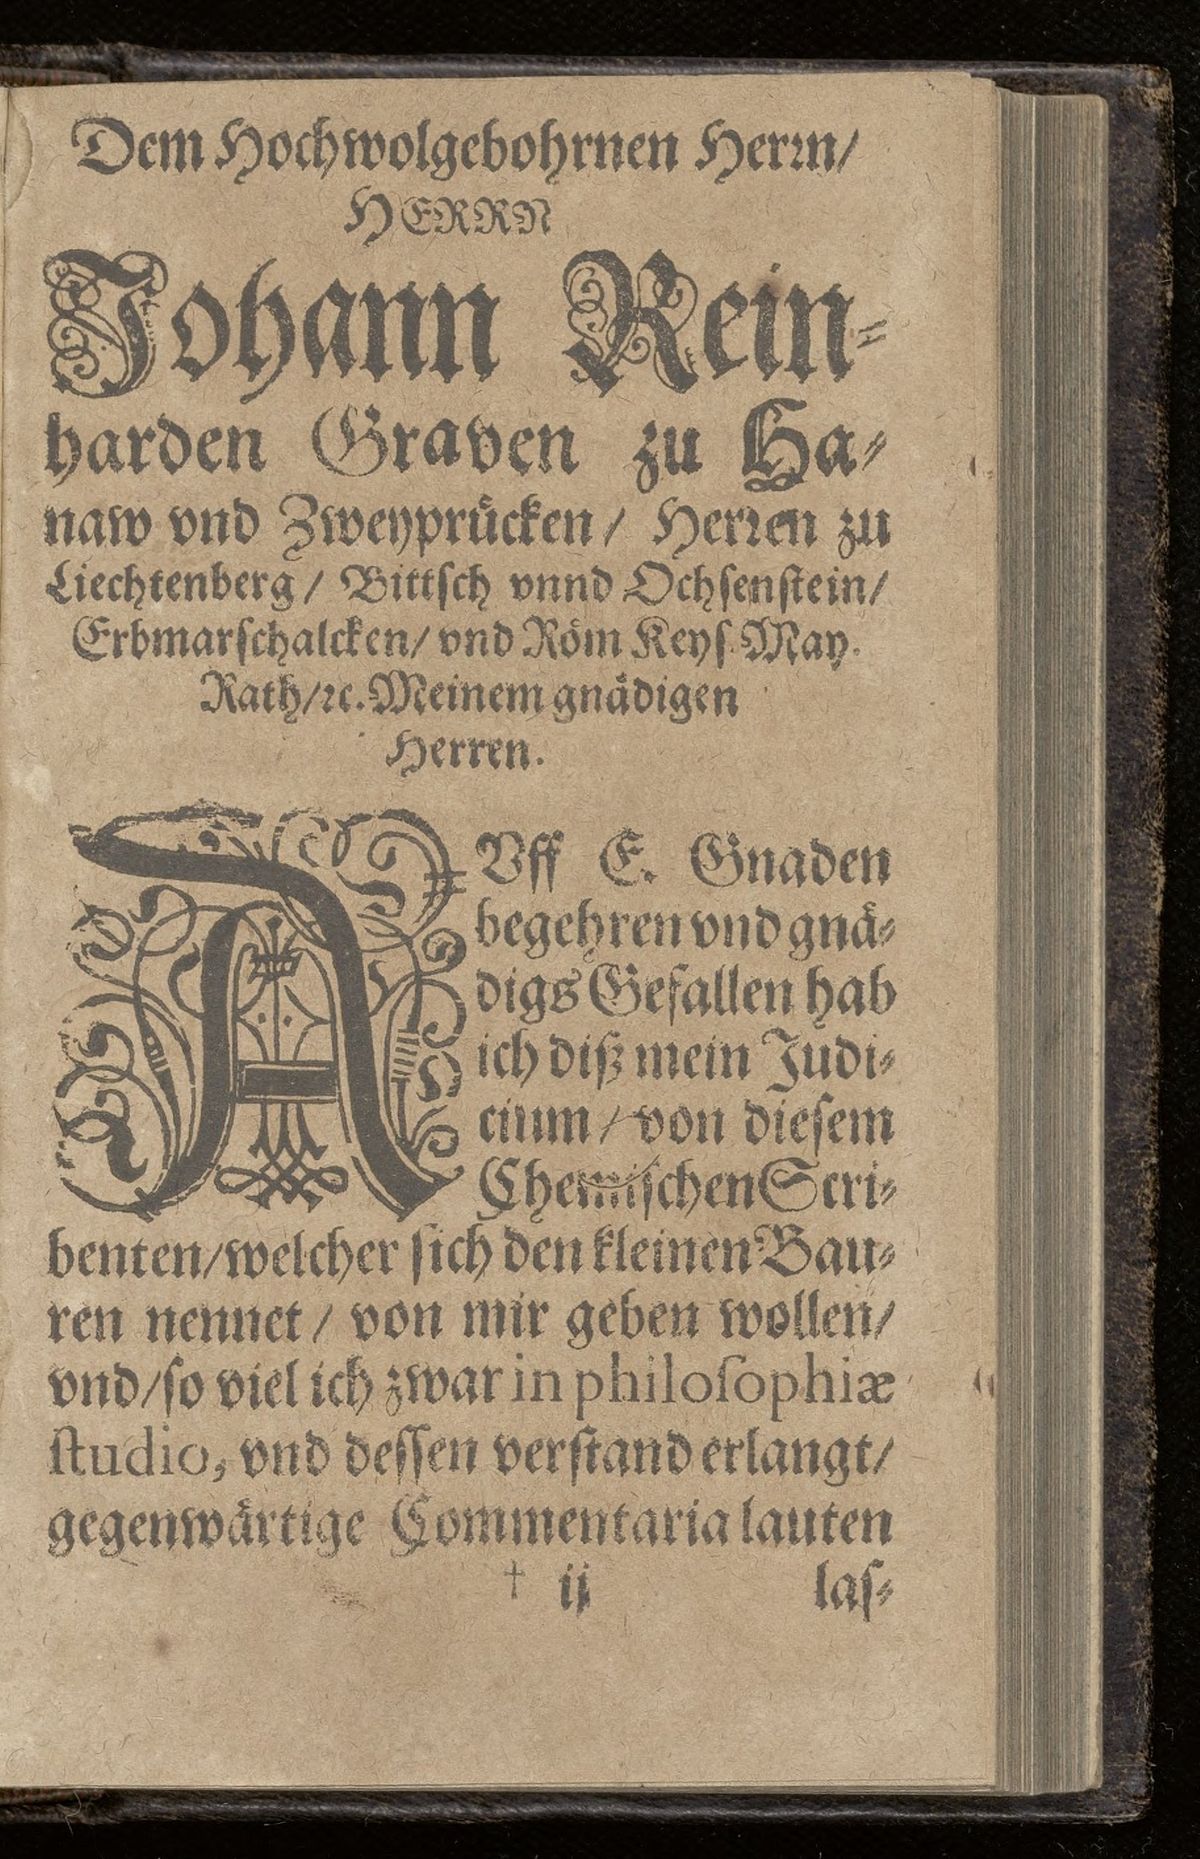 Dem Hochwolgebohrnen Herꝛn/
HERRN
Johann Rein-
harden Graven zu Ha-
naw vnd Zweyprücken/ Herꝛen zu
Liechtenberg/ Bittſch vnnd Ochſenſtein/
Erbmarſchalcken/ vnd Röm Keyſ. May.
Rath/ꝛc. Meinem gnädigen
Herren.
AVff E. Gnaden
begehren vnd gnä-
digs Gefallen hab
ich diß mein Judi-
cium / von dieſem
Chemiſchen Scri-
benten/welcher ſich den kleinen Bau-
ren nennet / von mir geben wollen/
vnd/ſo viel ich zwar in philoſophiæ
ſtudio, vnd deſſen verſtand erlangt/
gegenwärtige Commentaria lauten
† ij laſ-